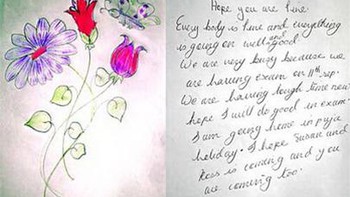 Hope you are fine.
Every body is fine and everything
is going on well and good
We are very busy because we
are having exam on 11th sep.
We are having tough time now
hope I will do good in exam.
I am going home in puja
holiday. I hope Susan and
Ross is coming and you
are coming too.